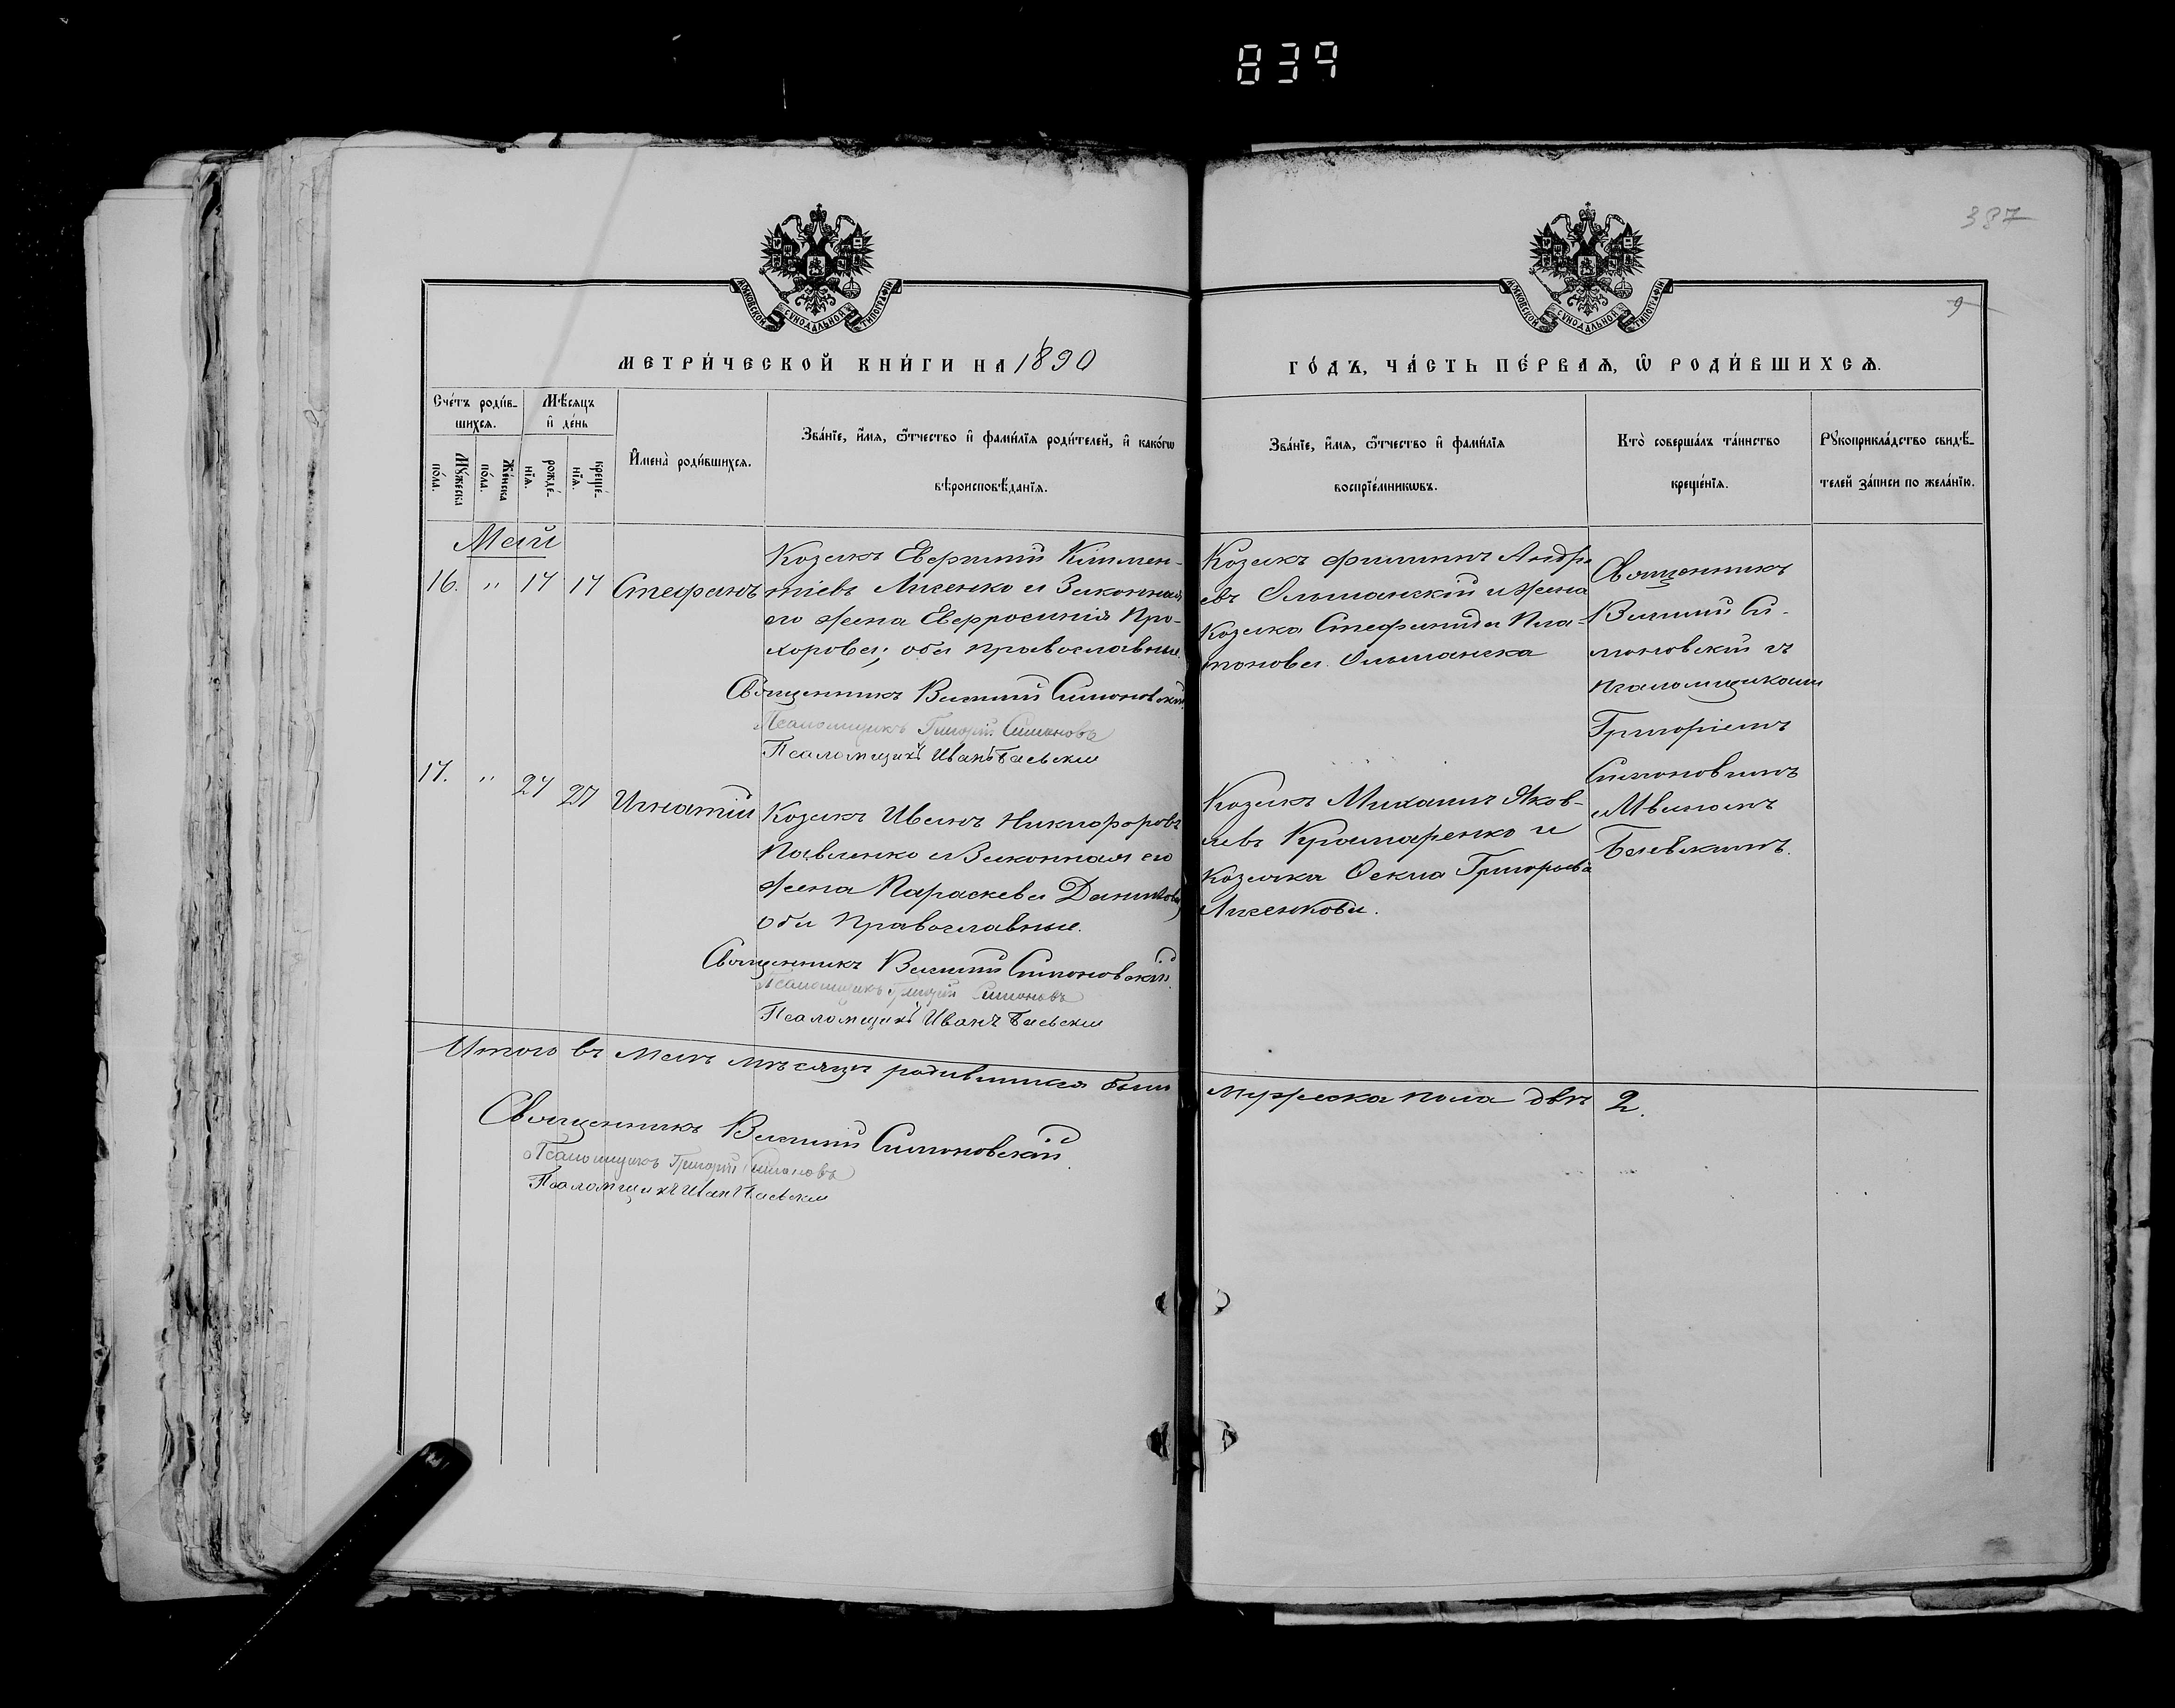 839
387
9
МОСКОВСКОЙ СѴНОДАЛЬНОЙ ТИПОГРАФІИ
МОСКОВСКОЙ СѴНОДАЛЬНОЙ ТИПОГРАФІИ
МЕТРИ́ЧЕСКОЙ КНИ́ГИ НА 1890
ГО́ДЪ, ЧА́СТЬ ПЕ́РВАѦ, Ѡ҆ РОДИ́ВШИХСѦ.
Сче́тъ роди́в-
шихсѧ.
Мꙋ́жеска
по́ла.
Же́нска
по́ла.
Мѣ́сѧцъ
и҆ де́нь
рожде́-
нїѧ.
креще́-
нїѧ.
И҆мена̀ роди́вшихсѧ.
Зва́нїе, и҆́мѧ, ѻ҆́тчество и҆ фами́лїѧ роди́телей, и҆ како́гѡ
вѣроисповѣ́данїѧ.
Зва́нїе, и҆́мѧ, ѻ҆́тчество и҆ фами́лїѧ
воспрїе́мникѡвъ.
Кто̀ соверша́лъ та́инство
креще́нїѧ.
Рꙋкоприкла́дство свидѣ́-
телей за́писи по жела́нїю.
Май
16. " 17 17 Стефанъ
Козакъ
тіевъ Лисенко и Законная
его жена Евфросинія Про-
хорова; оба православные.
Священникъ Василий Симоновскій
Псаломщикъ Григорій Симоновъ
Псаломщикъ Иванъ Баевскій
Козакъ Филиппъ Андре
евъ Ольшанскій и жена
Козака Стефанида Пла-
тонова Ольшанска
Священникъ
Василий Си-
моновский съ
псаломщиками
Григоріемъ
Симоновымъ
и Иваномъ
Баевскимъ.
17. " 27 27 Игнатій
Козакъ Иванъ Никифоровъ
Павленко и Законная его
жена Параскева Данилова
оба Православные.
Священникъ Василий Симоновскій
Псаломщикъ Григорій Симоновъ
Псаломщикъ Иванъ Баевскій
Козакъ Михаилъ Яков-
левъ Крамаренко и
Козачка Григорьева
Лисенкова.
Итого въ Маѣ мѣсяцѣ родившихся было мужеска пола два 2.
Священникъ Василий Симоновскій
Псаломщикъ Григорій Симоновъ
Псаломщикъ Иванъ Баевскій